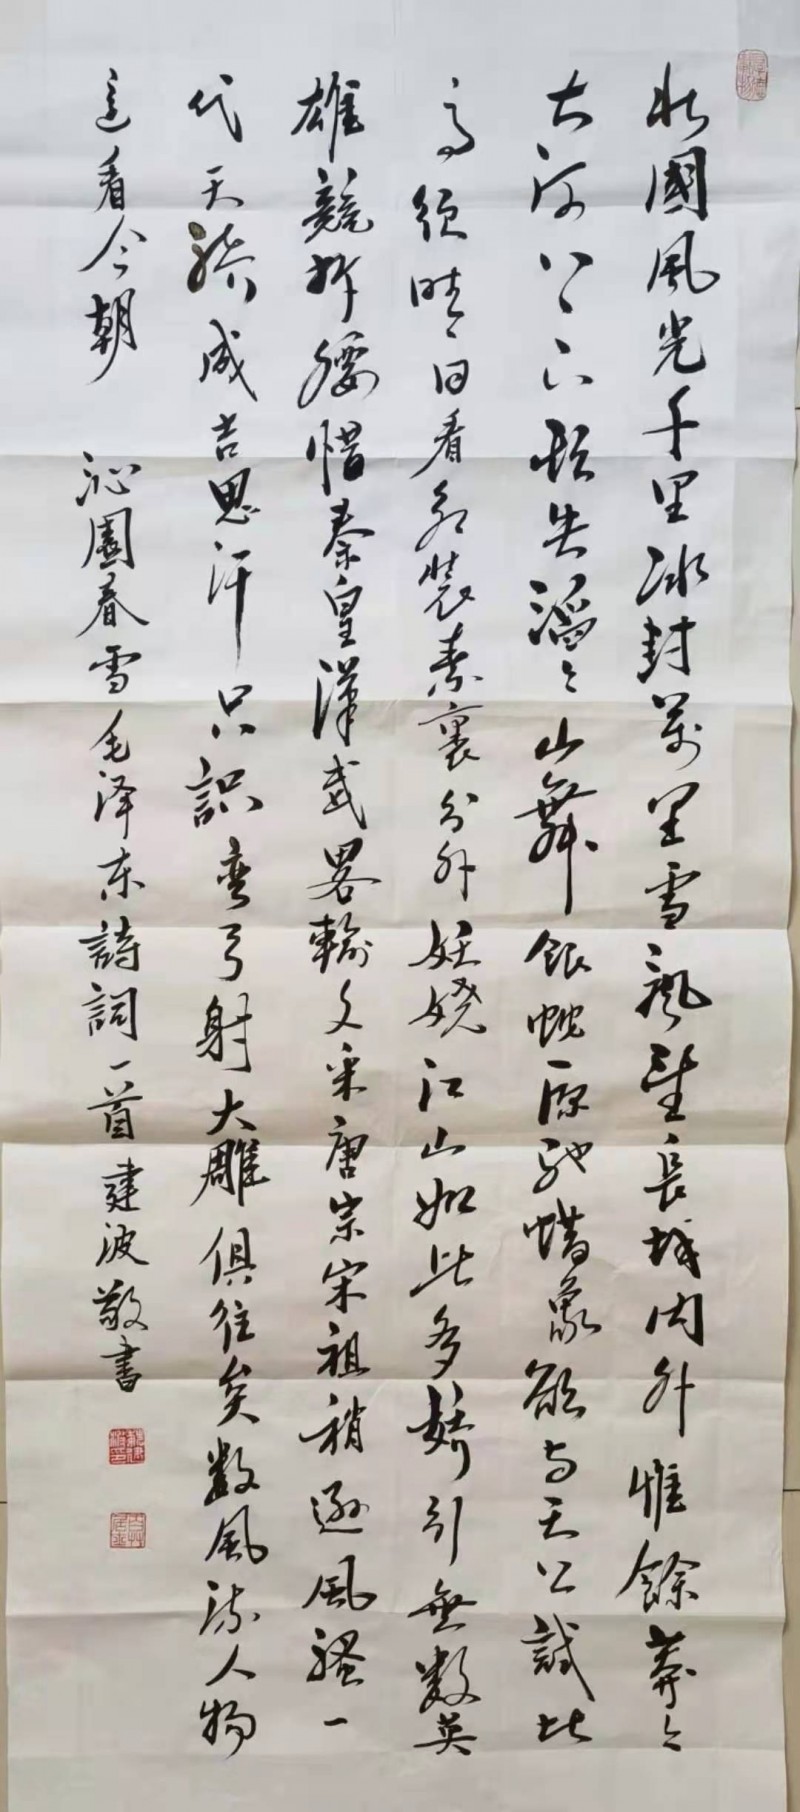 北國風光千里冰封萬里雪飄望長城内外惟餘莽々
大河上下頓失滔々山舞銀蛇原馳蜡象欲与天公試比
高須晴日看紅裝素裹分外妖嬈江山如此多嬌引無數英
雄競折腰惜秦皇漢武畧輸文采唐宗宋祖稍遜風騷一
代天驕成吉思汗只識弯弓射大雕俱往矣數風流人物
還看今朝 沁園春雪毛泽东詩詞一首建波敬書